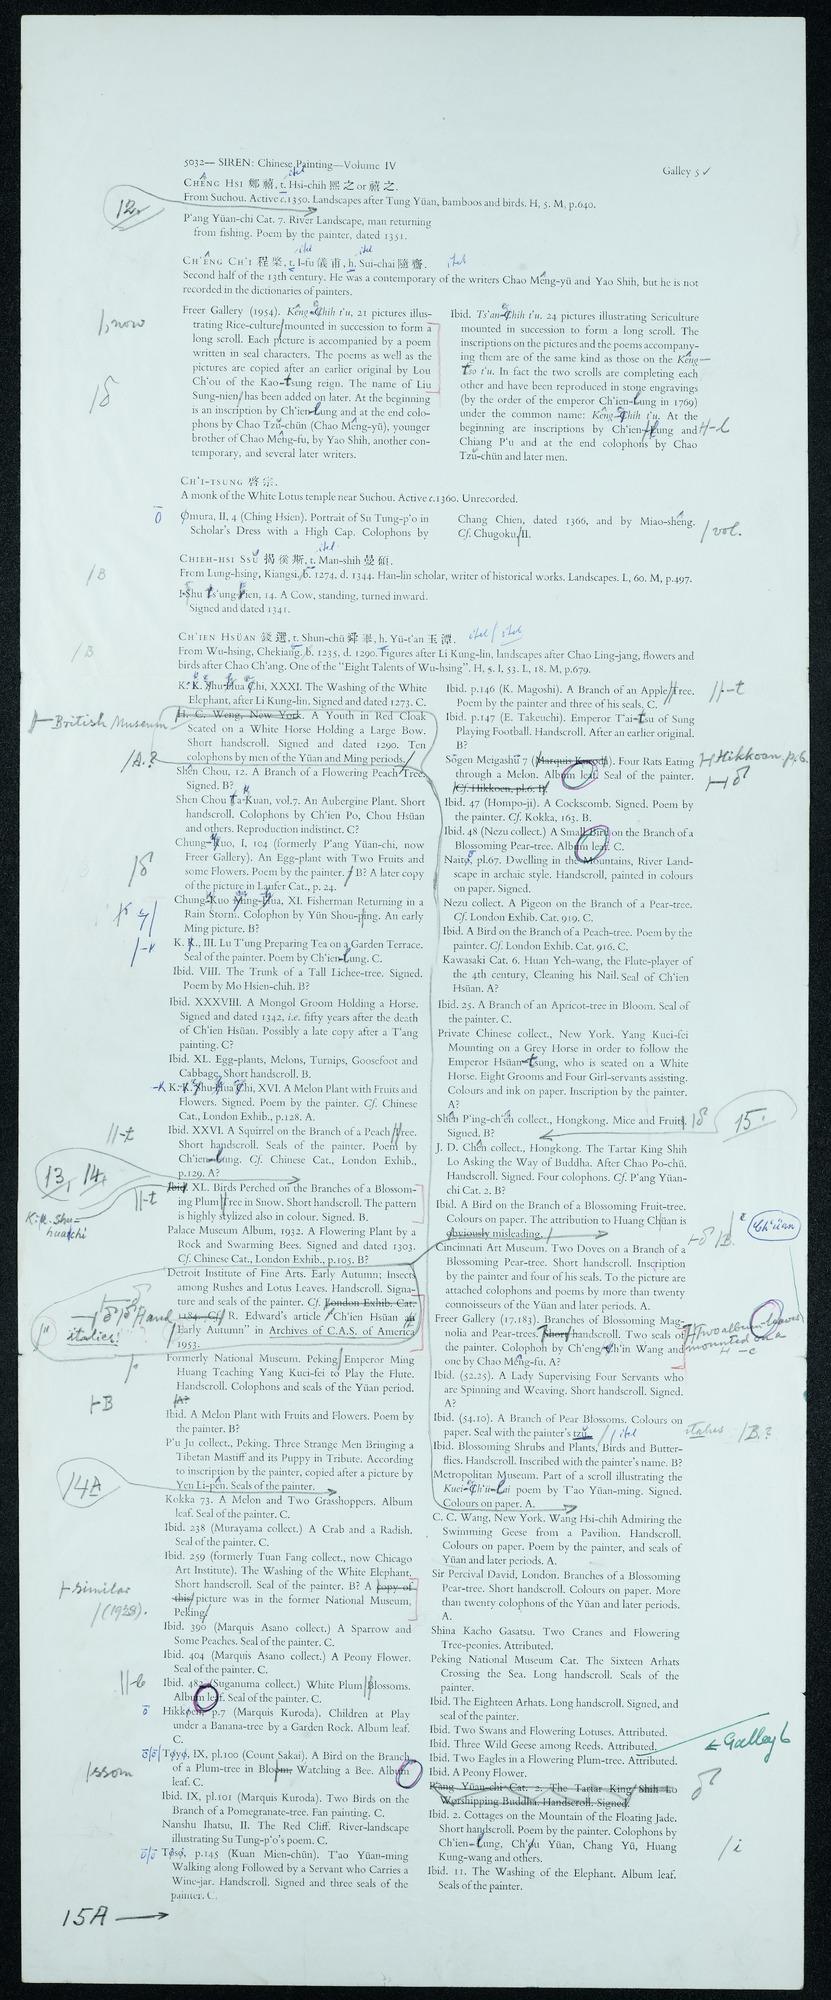 5032— SIREN: Chinese Painting—Volume IV
Galley 5 ✓
CHÊNG HSI 鄭禧, t. Hsi-chih 熙之 or 禧之.
From Suchou. Active c.1350. Landscapes after Tung Yüan, bamboos and birds. H, 5. M, p.640.
12
P'ang Yüan-chi Cat. 7. River Landscape, man returning
from fishing. Poem by the painter, dated 1351.
CH'ÊNG CH'I 程棨, t. I-fu 儀甫, h. Sui-chai 隨齋.
Second half of the 13th century. He was a contemporary of the writers Chao Mêng-yü and Yao Shih, but he is not
recorded in the dictionaries of painters.
Freer Gallery (1954). Kêng-Chih t'u, 21 pictures illus-
trating Rice-culture mounted in succession to form a
long scroll. Each picture is accompanied by a poem
written in seal characters. The poems as well as the
pictures are copied after an earlier original by Lou
Ch'ou of the Kao-tsung reign. The name of Liu
Sung-nien has been added on later. At the beginning
is an inscription by Ch'ien-lung and at the end colo-
phons by Chao Tzŭ-chün (Chao Mêng-yü), younger
brother of Chao Mêng-fu, by Yao Shih, another con-
temporary, and several later writers.
now
Ibid. Ts'an-Chih t'u. 24 pictures illustrating Sericulture
mounted in succession to form a long scroll. The
inscriptions on the pictures and the poems accompany-
ing them are of the same kind as those on the Kêng—
tso t'u. In fact the two scrolls are completing each
other and have been reproduced in stone engravings
(by the order of the emperor Ch'ien-lung in 1769)
under the common name: Kêng-Chih t'u. At the
beginning are inscriptions by Ch'ien-lung and
Chiang P'u and at the end colophons by Chao
Tzŭ-chün and later men.
CH'I-TSUNG 啓宗.
A monk of the White Lotus temple near Suchou. Active c.1360. Unrecorded.
Omura, II, 4 (Ching Hsien). Portrait of Su Tung-p'o in
Scholar's Dress with a High Cap. Colophons by
Chang Chien, dated 1366, and by Miao-shêng.
Cf. Chugoku, II.
vol.
CHIEH-HSI SSŬ 揭傒斯, t. Man-shih 曼碩.
From Lung-hsing, Kiangsi, b. 1274, d. 1344. Han-lin scholar, writer of historical works. Landscapes. L, 60. M, p.497.
/B
I-Shu ts'ung-hien, 14. A Cow, standing, turned inward.
Signed and dated 1341.
CH'IEN HSÜAN 錢選, t. Shun-chü 舜舉, h. Yü-t'an 玉潭.
From Wu-hsing, Chekiang, b. 1235, d. 1290. Figures after Li Kung-lin, landscapes after Chao Ling-jang, flowers and
birds after Chao Ch'ang. One of the "Eight Talents of Wu-hsing". H, 5. I, 53. L, 18. M, p.679.
/B
K. K. Shu-Hua Chi, XXXI. The Washing of the White
Elephant, after Li Kung-lin. Signed and dated 1273. C.
British Museum
H. C. Weng, New York. A Youth in Red Cloak
Seated on a White Horse Holding a Large Bow.
Short handscroll. Signed and dated 1290. Ten
colophons by men of the Yüan and Ming periods.
/A.?
Shên Chou, 12. A Branch of a Flowering Peach Tree.
Signed. B?
Shen Chou Ta-Kuan, vol.7. An Aubergine Plant. Short
handscroll. Colophons by Ch'ien Po, Chou Hsüan
and others. Reproduction indistinct. C?
Chung-Kuo, I, 104 (formerly P'ang Yüan-chi, now
Freer Gallery). An Egg-plant with Two Fruits and
some Flowers. Poem by the painter. B? A later copy
of the picture in Laufer Cat., p. 24.
Chung-Kuo Ming-Hua, XI. Fisherman Returning in a
Rain Storm. Colophon by Yün Shou-ping. An early
Ming picture. B?
K. K., III. Lu T'ung Preparing Tea on a Garden Terrace.
Seal of the painter. Poem by Ch'ien-lung. C.
Ibid. VIII. The Trunk of a Tall Lichee-tree. Signed.
Poem by Mo Hsien-chih. B?
Ibid. XXXVIII. A Mongol Groom Holding a Horse.
Signed and dated 1342, i.e. fifty years after the death
of Ch'ien Hsüan. Possibly a late copy after a T'ang
painting. C?
Ibid. XL. Egg-plants, Melons, Turnips, Goosefoot and
Cabbage. Short handscroll. B.
K. K. Shu-Hua Chi, XVI. A Melon Plant with Fruits and
Flowers. Signed. Poem by the painter. Cf. Chinese
Cat., London Exhib., p.128. A.
Ibid. XXVI. A Squirrel on the Branch of a Peach Tree.
Short handscroll. Seals of the painter. Poem by
Ch'ien-lung. Cf. Chinese Cat., London Exhib.,
p.129. A?
//-t
13, 14
//-t
K.-K. Shu-
hua chi
Ibid. XL. Birds Perched on the Branches of a Blossom-
ing Plum Tree in Snow. Short handscroll. The pattern
is highly stylized also in colour. Signed. B.
Palace Museum Album, 1932. A Flowering Plant by a
Rock and Swarming Bees. Signed and dated 1303.
Cf. Chinese Cat., London Exhib., p.105. B?
Detroit Institute of Fine Arts. Early Autumn; Insects
among Rushes and Lotus Leaves. Handscroll. Signa-
ture and seals of the painter. Cf. London Exhib. Cat.
1184. Cf. R. Edward's article "Ch'ien Hsüan and
Early Autumn" in Archives of C.A.S. of America
1953.
and
italics!
Formerly National Museum. Peking Emperor Ming
Huang Teaching Yang Kuei-fei to Play the Flute.
Handscroll. Colophons and seals of the Yüan period.
A?
B
Ibid. A Melon Plant with Fruits and Flowers. Poem by
the painter. B?
P'u Ju collect., Peking. Three Strange Men Bringing a
Tibetan Mastiff and its Puppy in Tribute. According
to inscription by the painter, copied after a picture by
Yen Li-pên. Seals of the painter.
14A
Kokka 73. A Melon and Two Grasshoppers. Album
leaf. Seal of the painter. C.
Ibid. 238 (Murayama collect.) A Crab and a Radish.
Seal of the painter. C.
Ibid. 259 (formerly Tuan Fang collect., now Chicago
Art Institute). The Washing of the White Elephant.
Short handscroll. Seal of the painter. B? A copy of
this picture was in the former National Museum,
Peking.
similar
/(1958).
Ibid. 390 (Marquis Asano collect.) A Sparrow and
Some Peaches. Seal of the painter. C.
Ibid. 404 (Marquis Asano collect.) A Peony Flower.
Seal of the painter. C.
Ibid. 482 (Suganuma collect.) White Plum Blossoms.
Album leaf. Seal of the painter. C.
//-b
Hikkoen, p.7 (Marquis Kuroda). Children at Play
under a Banana-tree by a Garden Rock. Album leaf.
C.
Toyo, IX, pl.100 (Count Sakai). A Bird on the Branch
of a Plum-tree in Bloom, Watching a Bee. Album
leaf. C.
/ssom
Ibid. IX, pl.101 (Marquis Kuroda). Two Birds on the
Branch of a Pomegranate-tree. Fan painting. C.
Nanshu Ihatsu, II. The Red Cliff. River-landscape
illustrating Su Tung-p'o's poem. C.
Toso, p.145 (Kuan Mien-chün). T'ao Yüan-ming
Walking along Followed by a Servant who Carries a
Wine-jar. Handscroll. Signed and three seals of the
painter. C.
15A
Ibid. p.146 (K. Magoshi). A Branch of an Apple Tree.
Poem by the painter and three of his seals. C.
//-t
Ibid. p.147 (E. Takeuchi). Emperor T'ai-tsu of Sung
Playing Football. Handscroll. After an earlier original.
B?
Sōgen Meigashū 7 (Marquis Kuroda). Four Rats Eating
through a Melon. Album leaf. Seal of the painter.
Cf. Hikkoen, pl.6. B.
Hikkoen, pl.6.
Ibid. 47 (Hompo-ji). A Cockscomb. Signed. Poem by
the painter. Cf. Kokka, 163. B.
Ibid. 48 (Nezu collect.) A Small Bird on the Branch of a
Blossoming Pear-tree. Album leaf. C.
Naito, pl.67. Dwelling in the Mountains, River Land-
scape in archaic style. Handscroll, painted in colours
on paper. Signed.
Nezu collect. A Pigeon on the Branch of a Pear-tree.
Cf. London Exhib. Cat. 919. C.
Ibid. A Bird on the Branch of a Peach-tree. Poem by the
painter. Cf. London Exhib. Cat. 916. C.
Kawasaki Cat. 6. Huan Yeh-wang, the Flute-player of
the 4th century, Cleaning his Nail. Seal of Ch'ien
Hsüan. A?
Ibid. 25. A Branch of an Apricot-tree in Bloom. Seal of
the painter. C.
Private Chinese collect., New York. Yang Kuei-fei
Mounting on a Grey Horse in order to follow the
Emperor Hsüan-tsung, who is seated on a White
Horse. Eight Grooms and Four Girl-servants assisting.
Colours and ink on paper. Inscription by the painter.
A?
Shên P'ing-ch'ên collect., Hongkong. Mice and Fruit.
Signed. B?
15.
J. D. Chên collect., Hongkong. The Tartar King Shih
Lo Asking the Way of Buddha. After Chao Po-chü.
Handscroll. Signed. Four colophons. Cf. P'ang Yüan-
chi Cat. 2. B?
Ibid. A Bird on the Branch of a Blossoming Fruit-tree.
Colours on paper. The attribution to Huang Chüan is
obviously misleading.
/B.
Ch'üan
Cincinnati Art Museum. Two Doves on a Branch of a
Blossoming Pear-tree. Short handscroll. Inscription
by the painter and four of his seals. To the picture are
attached colophons and poems by more than twenty
connoisseurs of the Yüan and later periods. A.
Freer Gallery (17.183). Branches of Blossoming Mag-
nolia and Pear-trees. Short handscroll. Two seals of
the painter. Colophon by Ch'êng Ch'in Wang and
one by Chao Mêng-fu. A?
Two album-leaves
mounted on a
Ibid. (52.25). A Lady Supervising Four Servants who
are Spinning and Weaving. Short handscroll. Signed.
A?
Ibid. (54.10). A Branch of Pear Blossoms. Colours on
paper. Seal with the painter's tzŭ.
italics /B.?
Ibid. Blossoming Shrubs and Plants, Birds and Butter-
flies. Handscroll. Inscribed with the painter's name. B?
Metropolitan Museum. Part of a scroll illustrating the
Kuei-Ch'ü-Lai poem by T'ao Yüan-ming. Signed.
Colours on paper. A.
C. C. Wang, New York. Wang Hsi-chih Admiring the
Swimming Geese from a Pavilion. Handscroll.
Colours on paper. Poem by the painter, and seals of
Yüan and later periods. A.
Sir Percival David, London. Branches of a Blossoming
Pear-tree. Short handscroll. Colours on paper. More
than twenty colophons of the Yüan and later periods.
A.
Shina Kacho Gasatsu. Two Cranes and Flowering
Tree-peonies. Attributed.
Peking National Museum Cat. The Sixteen Arhats
Crossing the Sea. Long handscroll. Seals of the
painter.
Ibid. The Eighteen Arhats. Long handscroll. Signed, and
seal of the painter.
Ibid. Two Swans and Flowering Lotuses. Attributed.
Ibid. Three Wild Geese among Reeds. Attributed.
← Galley 6
Ibid. Two Eagles in a Flowering Plum-tree. Attributed.
Ibid. A Peony Flower.
P'ang Yüan-chi Cat. 2. The Tartar King Shih Lo
Worshipping Buddha. Handscroll. Signed.
Ibid. 2. Cottages on the Mountain of the Floating Jade.
Short handscroll. Poem by the painter. Colophons by
Ch'ien-lung, Ch'ou Yüan, Chang Yü, Huang
Kung-wang and others.
/i
Ibid. 11. The Washing of the Elephant. Album leaf.
Seals of the painter.